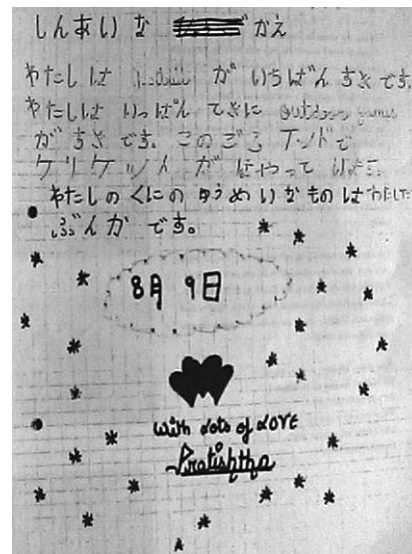 しんあいな かえ
わたしは が いちばん すき です。
わたしは いっぱん てきに outdoor games
が すき です。 このごろ インドで
クリケット が はやって います。
わたしの くにの ゆうめい な もの は わたしたち
ぶんか です。
8月 9日
with Lots of LOVE
Pratishtha